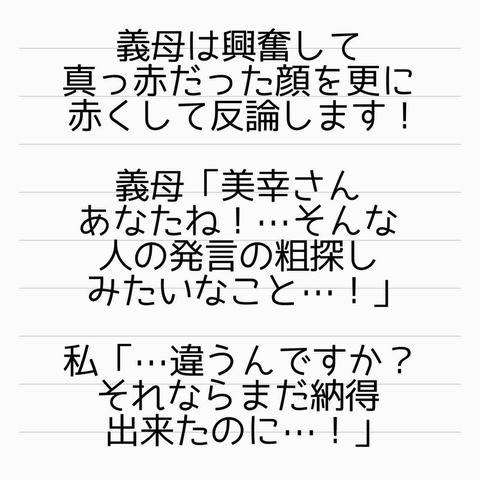 義母は興奮して
真っ赤だった顔を更に
赤くして反論します！
義母「美幸さん
あなたね！…そんな
人の発言の粗探し
みたいなこと…！」
私「…違うんですか？
それならまだ納得
出来たのに…！」